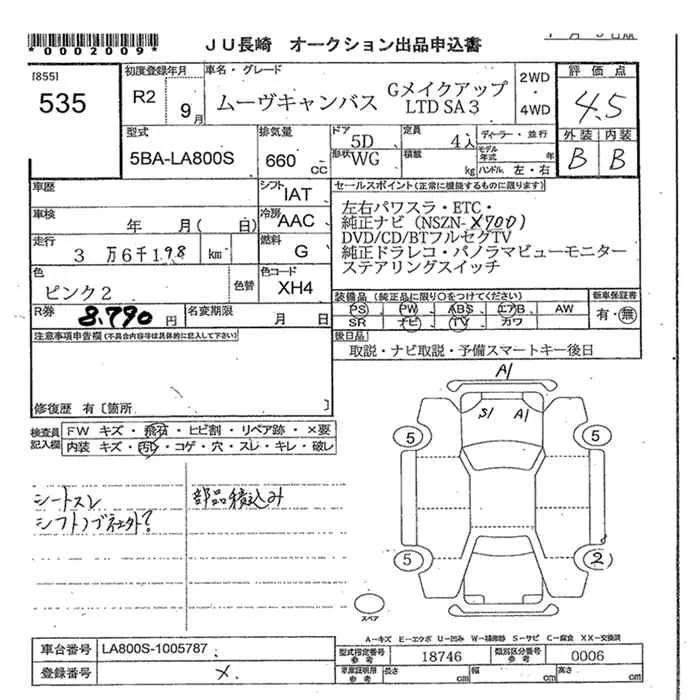 *0002009* JU長崎 オークション出品申込書
[855]
535
初度登録年月 車名・グレード 2WD・4WD 評価点
R2 9月 ムーヴキャンバス GメイクアップLTD SA3 4.5
型式 排気量 ドア 定員 ディーラー・並行 外装 内装
5BA-LA800S 660cc 5D 4人 モデル年式 年 B B
形状 WG 積載 kg ハンドル 左・右
車歴 シフト IAT セールスポイント(正常に機能するものに限ります)
車検 年 月( 日) 冷房 AAC
左右パワスラ・ETC・
純正ナビ(NSZN-X700)
走行 3万6千198 km 燃料 G
DVD/CD/BTフルセグTV
純正ドラレコ・パノラマビューモニター
ステアリングスイッチ
色 ピンク2 色替 色コード XH4
装備品(純正品に限り○をつけてください) 新車保証書
PS PW ABS エアB AW 有・無
SR ナビ TV カワ
R券 8,790円 名変期限 月 日
後日品
取説・ナビ取説・予備スマートキー後日
注意事項申告欄(不具合内容等は具体的に記入して下さい)
修復歴 有〔箇所 〕
検査員記入欄
FW キズ・飛石・ヒビ割・リペア跡・×要
内装 キズ・汚れ・コゲ・穴・スレ・キレ・破レ
シートスレ 部品積込み
シフトノブ社外?
A1
S1 A1
5 5
5 2
スペア
A-キズ E-エクボ U-凹み W-補修跡 S-サビ C-腐食 XX-交換済
車台番号 LA800S-1005787
型式指定番号 参考 18746 類別区分番号 参考 0006
登録番号 メ
車庫証明用 参考 長さ cm 幅 cm 高さ cm